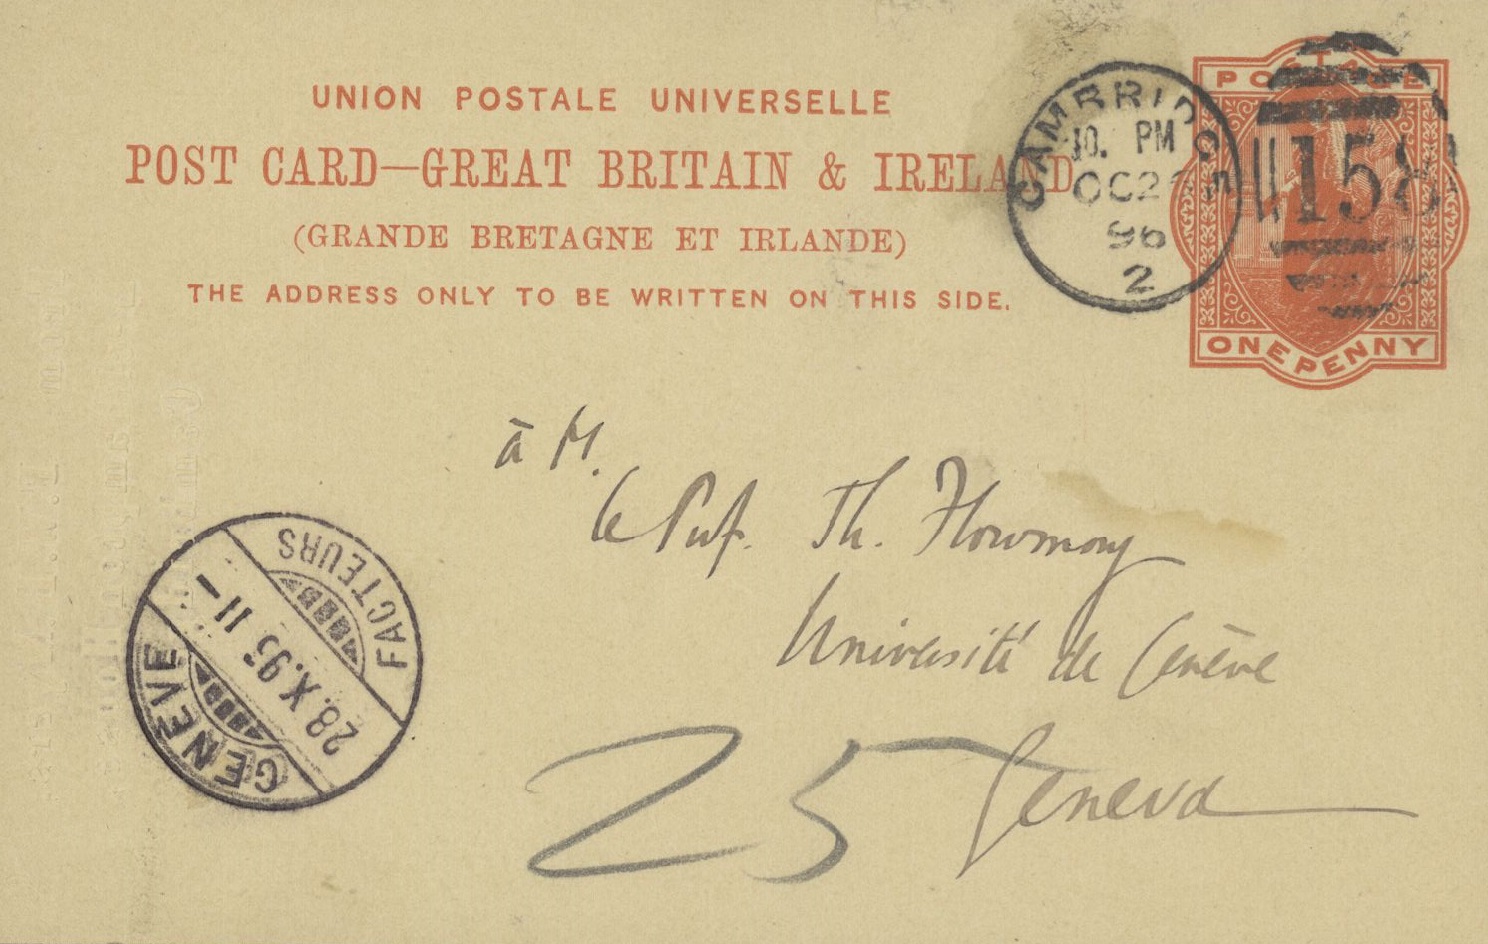 UNION POSTALE UNIVERSELLE
POST CARD—GREAT BRITAIN & IRELAND
(GRANDE BRETAGNE ET IRLANDE)
THE ADDRESS ONLY TO BE WRITTEN ON THIS SIDE.
CAMBRIDGE
10. PM
OC 2
96
2
158
POSTAGE
ONE PENNY
à M.
le Prof. Th. Flournoy
Université de Genève
Geneva
25
FACTEURS
28.X.96 11–
GENÈVE